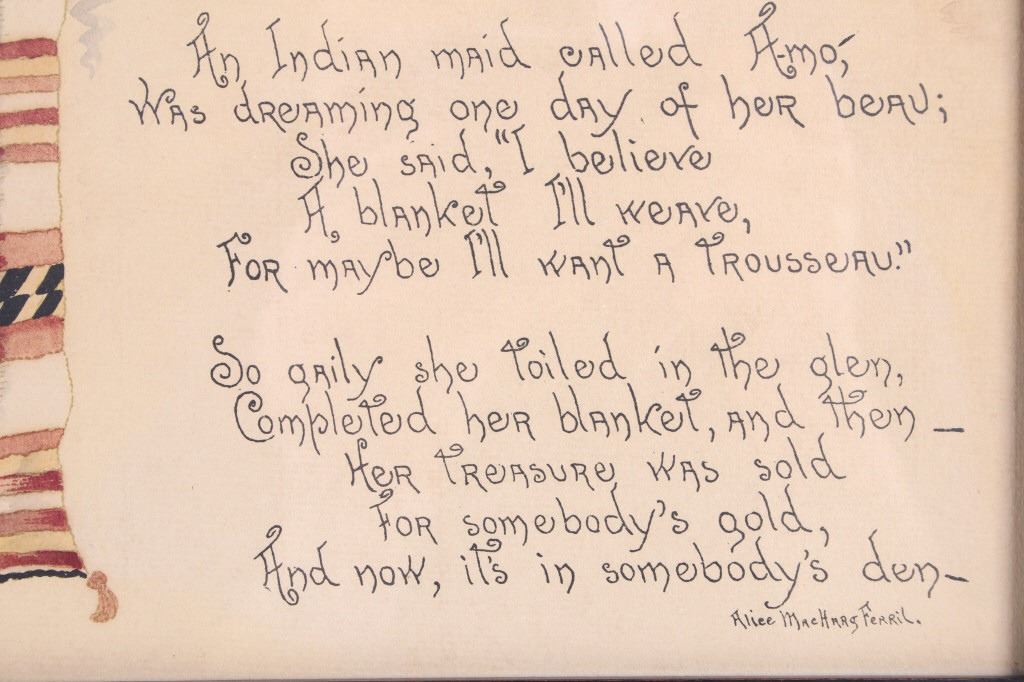 An Indian maid called A-mo,
Was dreaming one day of her beau;
She said, "I believe
A blanket I'll weave,
For maybe I'll want a trousseau."
So gaily she toiled in the glen,
Completed her blanket, and then —
Her treasure was sold
For somebody's gold,
And now, it's in somebody's den —
Alice MacHarg Ferril.